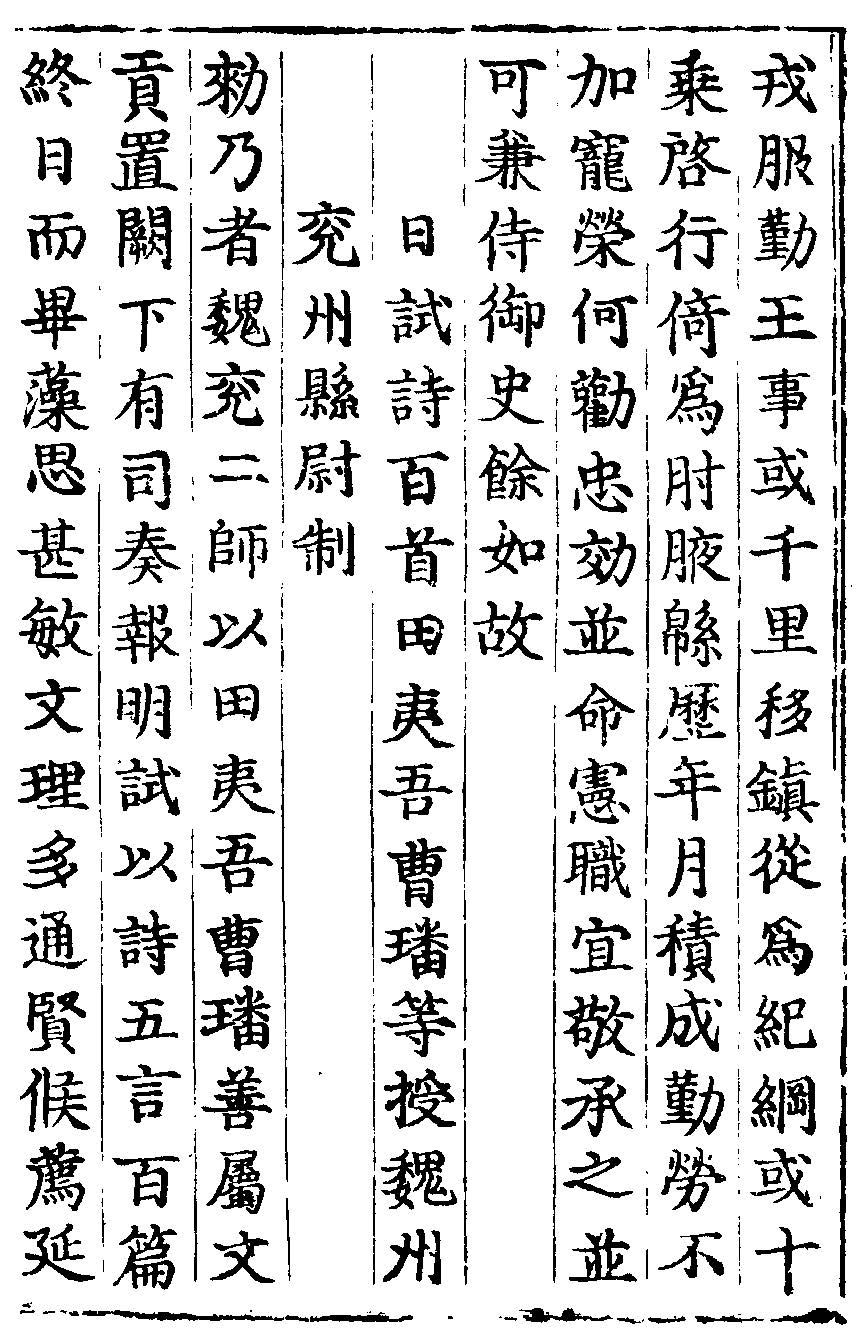 戎服勤王事或千里移鎮從爲紀綱或十
乘啓行倚爲肘腋緜歷年月積成勤勞不
加寵榮何勸忠效並命憲職宜敬承之並
可兼侍御史餘如故
日試詩百首田夷吾曹璠等授魏州
兖州縣尉制
勑乃者魏兖二師以田夷吾曹璠善屬文
貢置闕下有司奏報明試以詩五言百篇
終日而畢藻思甚敏文理多通賢侯薦延